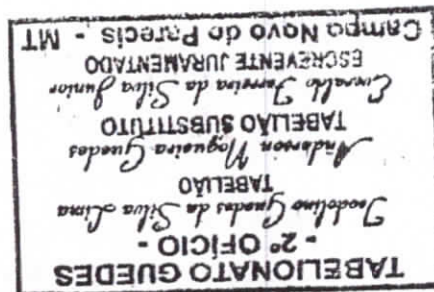 TABELIONATO GUEDES
- 2º OFÍCIO -
Teodolino Guedes da Silva Lima
TABELIÃO
Anderson Nogueira Guedes
TABELIÃO SUBSTITUTO
Euvaldo Ferreira da Silva Junior
ESCREVENTE JURAMENTADO
Campo Novo do Parecis - MT